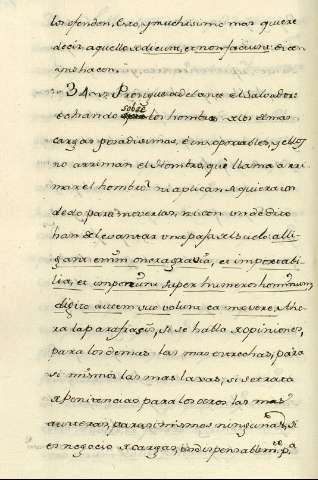 los ofenden, Esto, y muchissimo mas quiere
decir, aquello dicunt, et non faciunt. Dicen
y no hacen.
34 Prosigue adelante el Salvador:
echando sobre los hombros a los demas
cargas pesadissimas, è insoportables, y ellos
no arriman el hombro, que llama arri
mar el hombro, ni aplican siquiera un
dedo, para moverlas, ni con un dedito
han de levantar una paja del suelo: alli
gant enim onera gravia, et importabi
lia, et imponunt super humeros hominum,
digito autem suo nolunt ea movere. Aho
ra la parafrasis, si se habla de opiniones,
para los demas las mas estrechas, para
si mismos las mas laxas; si se trata
de penitencias para los otros las mas
austeras, para si mismos ninguna, si
es negocio de cargas, indispensablemte. pa.